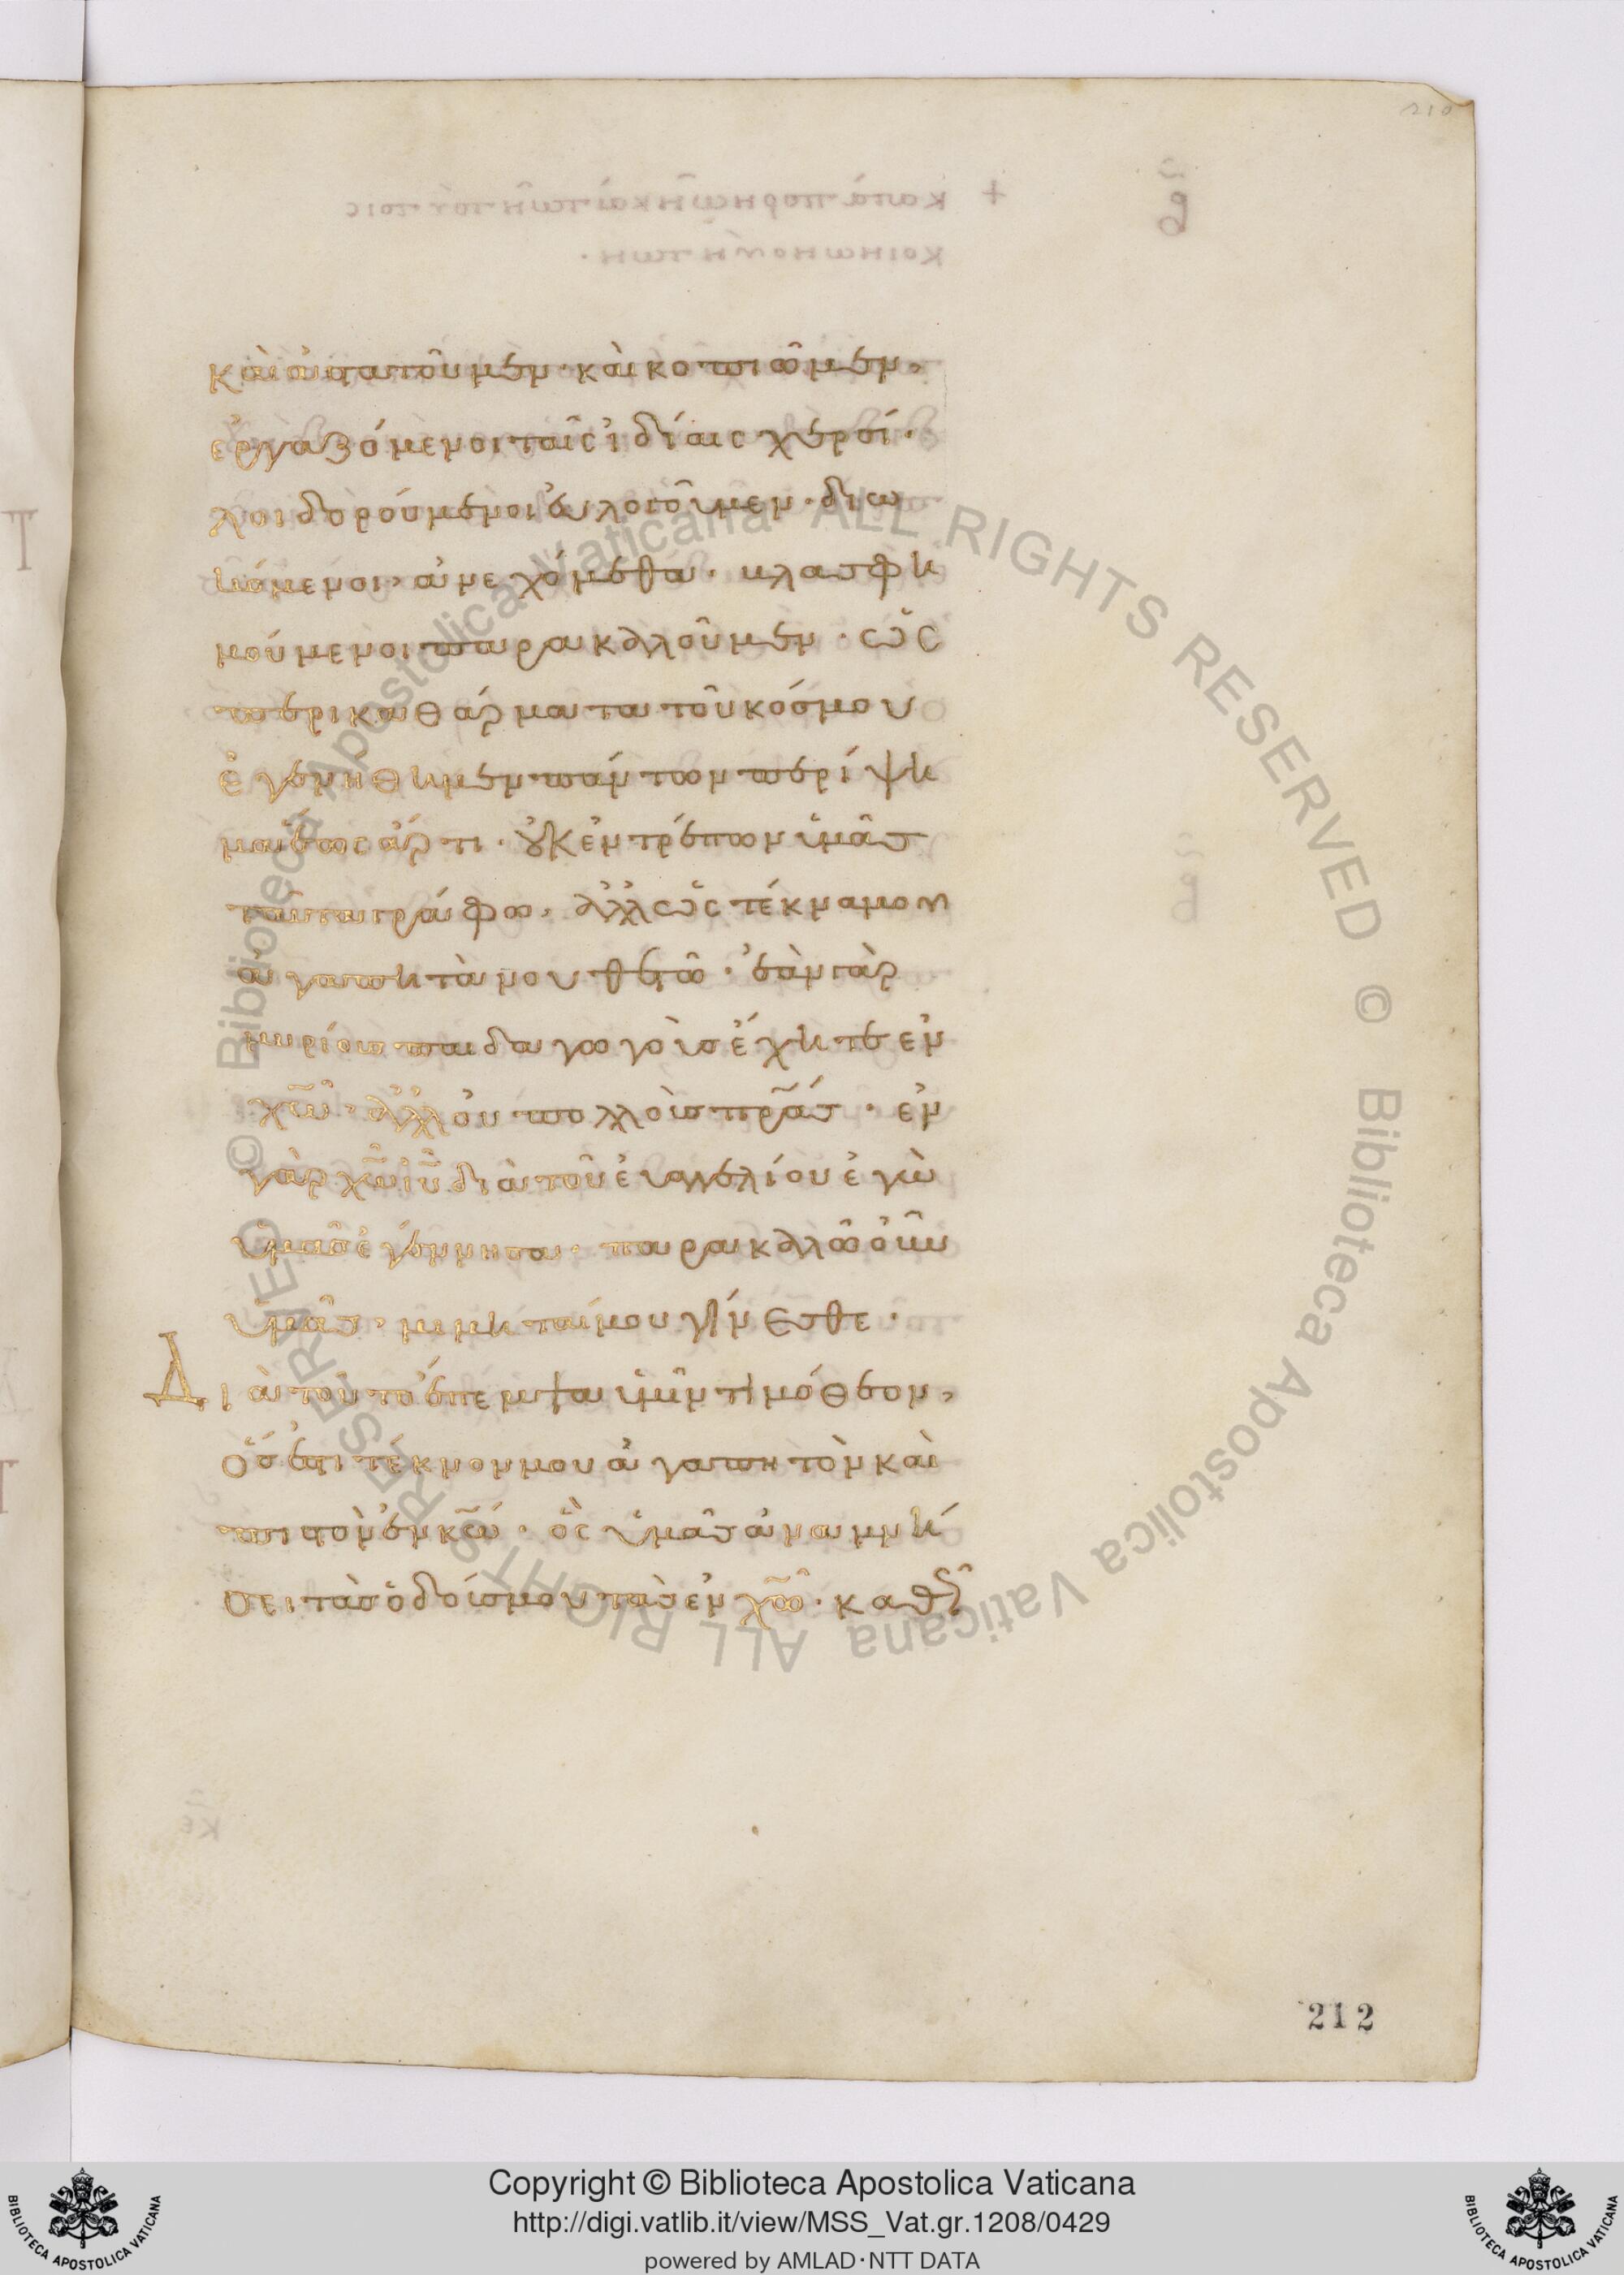 210
καὶ ἀστατοῦμεν· καὶ κοπιῶμεν,
ἐργαζόμενοι ταῖς ἰδίαις χερσί·
λοιδορούμενοι εὐλογοῦμεν· διω
κόμενοι, ἀνεχόμεθα· βλασφη
μούμενοι παρακαλοῦμεν· ὡς
περικαθάρματα τοῦ κόσμου
ἐγενήθημεν πάντων περίψη
μα ἕως ἄρτι· οὐκ ἐντρέπων ὑμᾶς
ταῦτα γράφω, ἀλλ ὡς τέκνα μου
ἀγαπητὰ νουθετῶ· ἐὰν γὰρ
μυρίους παιδαγωγοὺς ἔχητε ἐν
χω· ἀλλ οὐ πολλοὺς πρας· ἐν
γὰρ χω ιυ διὰ τοῦ εὐαγγελίου ἐγὼ
ὑμᾶς ἐγέννησα· παρακαλῶ οὖν
ὑμᾶς· μιμηταί μου γίνεσθε·
Διὰ τοῦτο ἔπεμψα ὑμῖν τιμόθεον,
ὅς ἐστι τέκνον μου ἀγαπητὸν καὶ
πιστὸν ἐν κω· ὃς ὑμᾶς ἀναμνή
σει τὰς ὁδούς μου τὰς ἐν χω· καθὼ
212
© Biblioteca Apostolica Vaticana ALL RIGHTS RESERVED © Biblioteca Apostolica Vaticana ALL RIGHTS RESERVED
Copyright © Biblioteca Apostolica Vaticana
http://digi.vatlib.it/view/MSS_Vat.gr.1208/0429
powered by AMLAD·NTT DATA
BIBLIOTECA APOSTOLICA VATICANA
BIBLIOTECA APOSTOLICA VATICANA